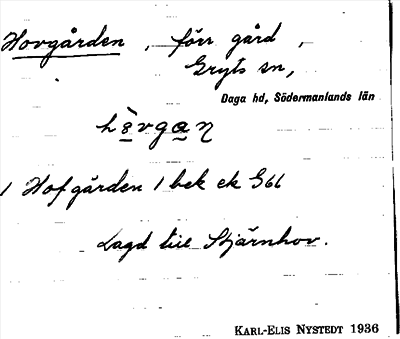 Hovgården, förr gård,
Gryts sn,
Daga hd, Södermanlands län
hèvgaɳ
/ Hofgården / bek ek G66
Lagd till Stjärnhov.
KARL-ELIS NYSTEDT 1936